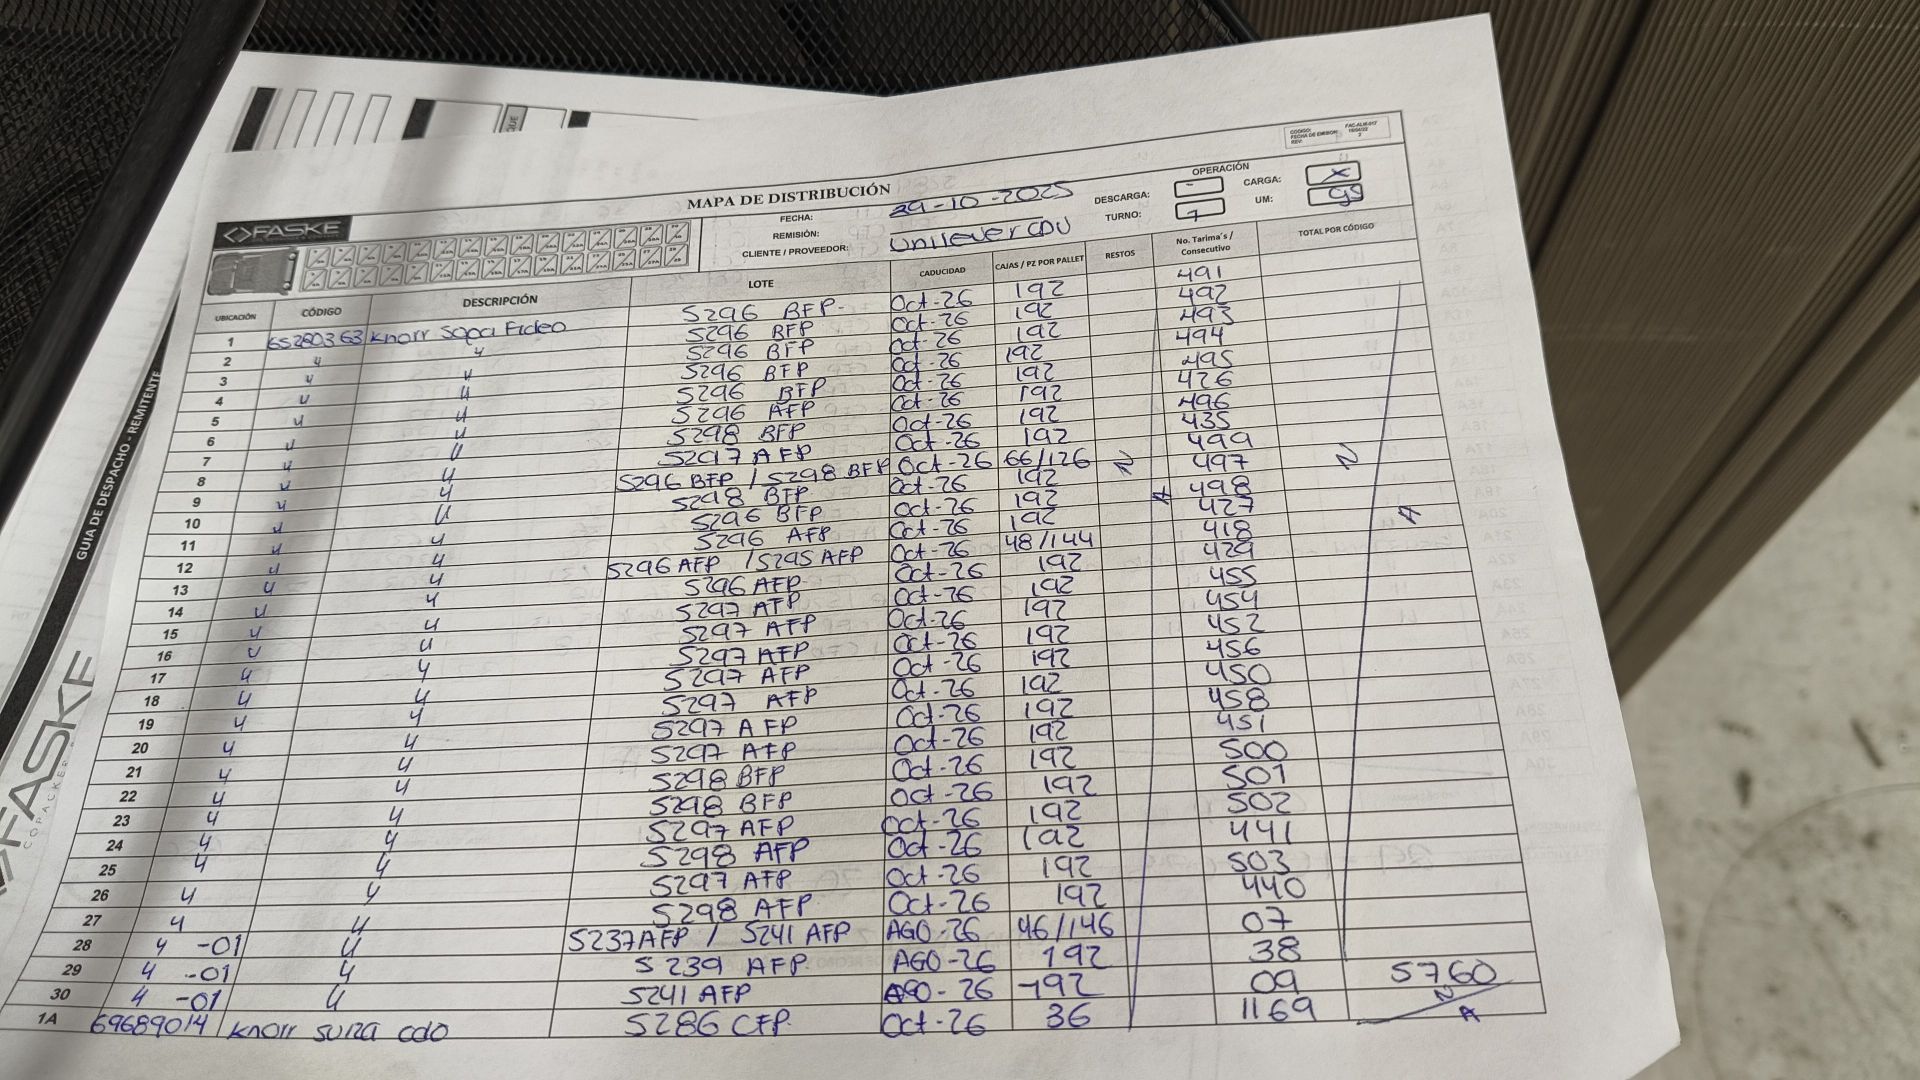 CÓDIGO: FAC-ALM-017
FECHA DE EMISION: 15/04/22
REV: 2
MAPA DE DISTRIBUCIÓN
<>FASKE
FECHA: 29-10-2025
REMISIÓN:
CLIENTE / PROVEEDOR: Unilever CDU
OPERACIÓN
DESCARGA: - CARGA: X
TURNO: 1 UM: 99
UBICACIÓN CÓDIGO DESCRIPCIÓN LOTE CADUCIDAD CAJAS / PZ POR PALLET RESTOS No. Tarima's / Consecutivo TOTAL POR CÓDIGO
1 65280363 Knorr Sopa Fideo S296 BFP- Oct-26 192 491
2 " " S296 BFP Oct-26 192 492
3 " " S296 BFP Oct-26 192 493
4 " " S296 BFP Oct-26 192 494
5 " " S296 BFP Oct-26 192 495
6 " " S296 AFP Oct-26 192 426
7 " " S298 BFP Oct-26 192 496
8 " " S297 AFP Oct-26 192 435
9 " " S296 BFP / S298 BFP Oct-26 66/126 N 499 N
10 " " S298 BFP Oct-26 192 497
11 " " S296 BFP Oct-26 192 A 498 A
12 " " S296 AFP Oct-26 192 427
13 " " S296 AFP / S295 AFP Oct-26 48/144 418
14 " " S296 AFP Oct-26 192 429
15 " " S297 AFP Oct-26 192 455
16 " " S297 AFP Oct-26 192 454
17 " " S297 AFP Oct-26 192 452
18 " " S297 AFP Oct-26 192 456
19 " " S297 AFP Oct-26 192 450
20 " " S297 AFP Oct-26 192 458
21 " " S297 AFP Oct-26 192 451
22 " " S298 BFP Oct-26 192 500
23 " " S298 BFP Oct-26 192 501
24 " " S297 AFP Oct-26 192 502
25 " " S298 AFP Oct-26 192 441
26 " " S297 AFP Oct-26 192 503
27 " " S298 AFP Oct-26 192 440
28 " -01 " S237AFP / S241 AFP AGO-26 46/146 07
29 " -01 " S239 AFP AGO-26 192 38
30 " -01 " S241 AFP AGO-26 192 09 5760
1A 69689014 Knorr suiza cdo S286 CFP Oct-26 36 1169 N A
GUIA DE DESPACHO - REMITENTE
<>FASKE
COPACKER